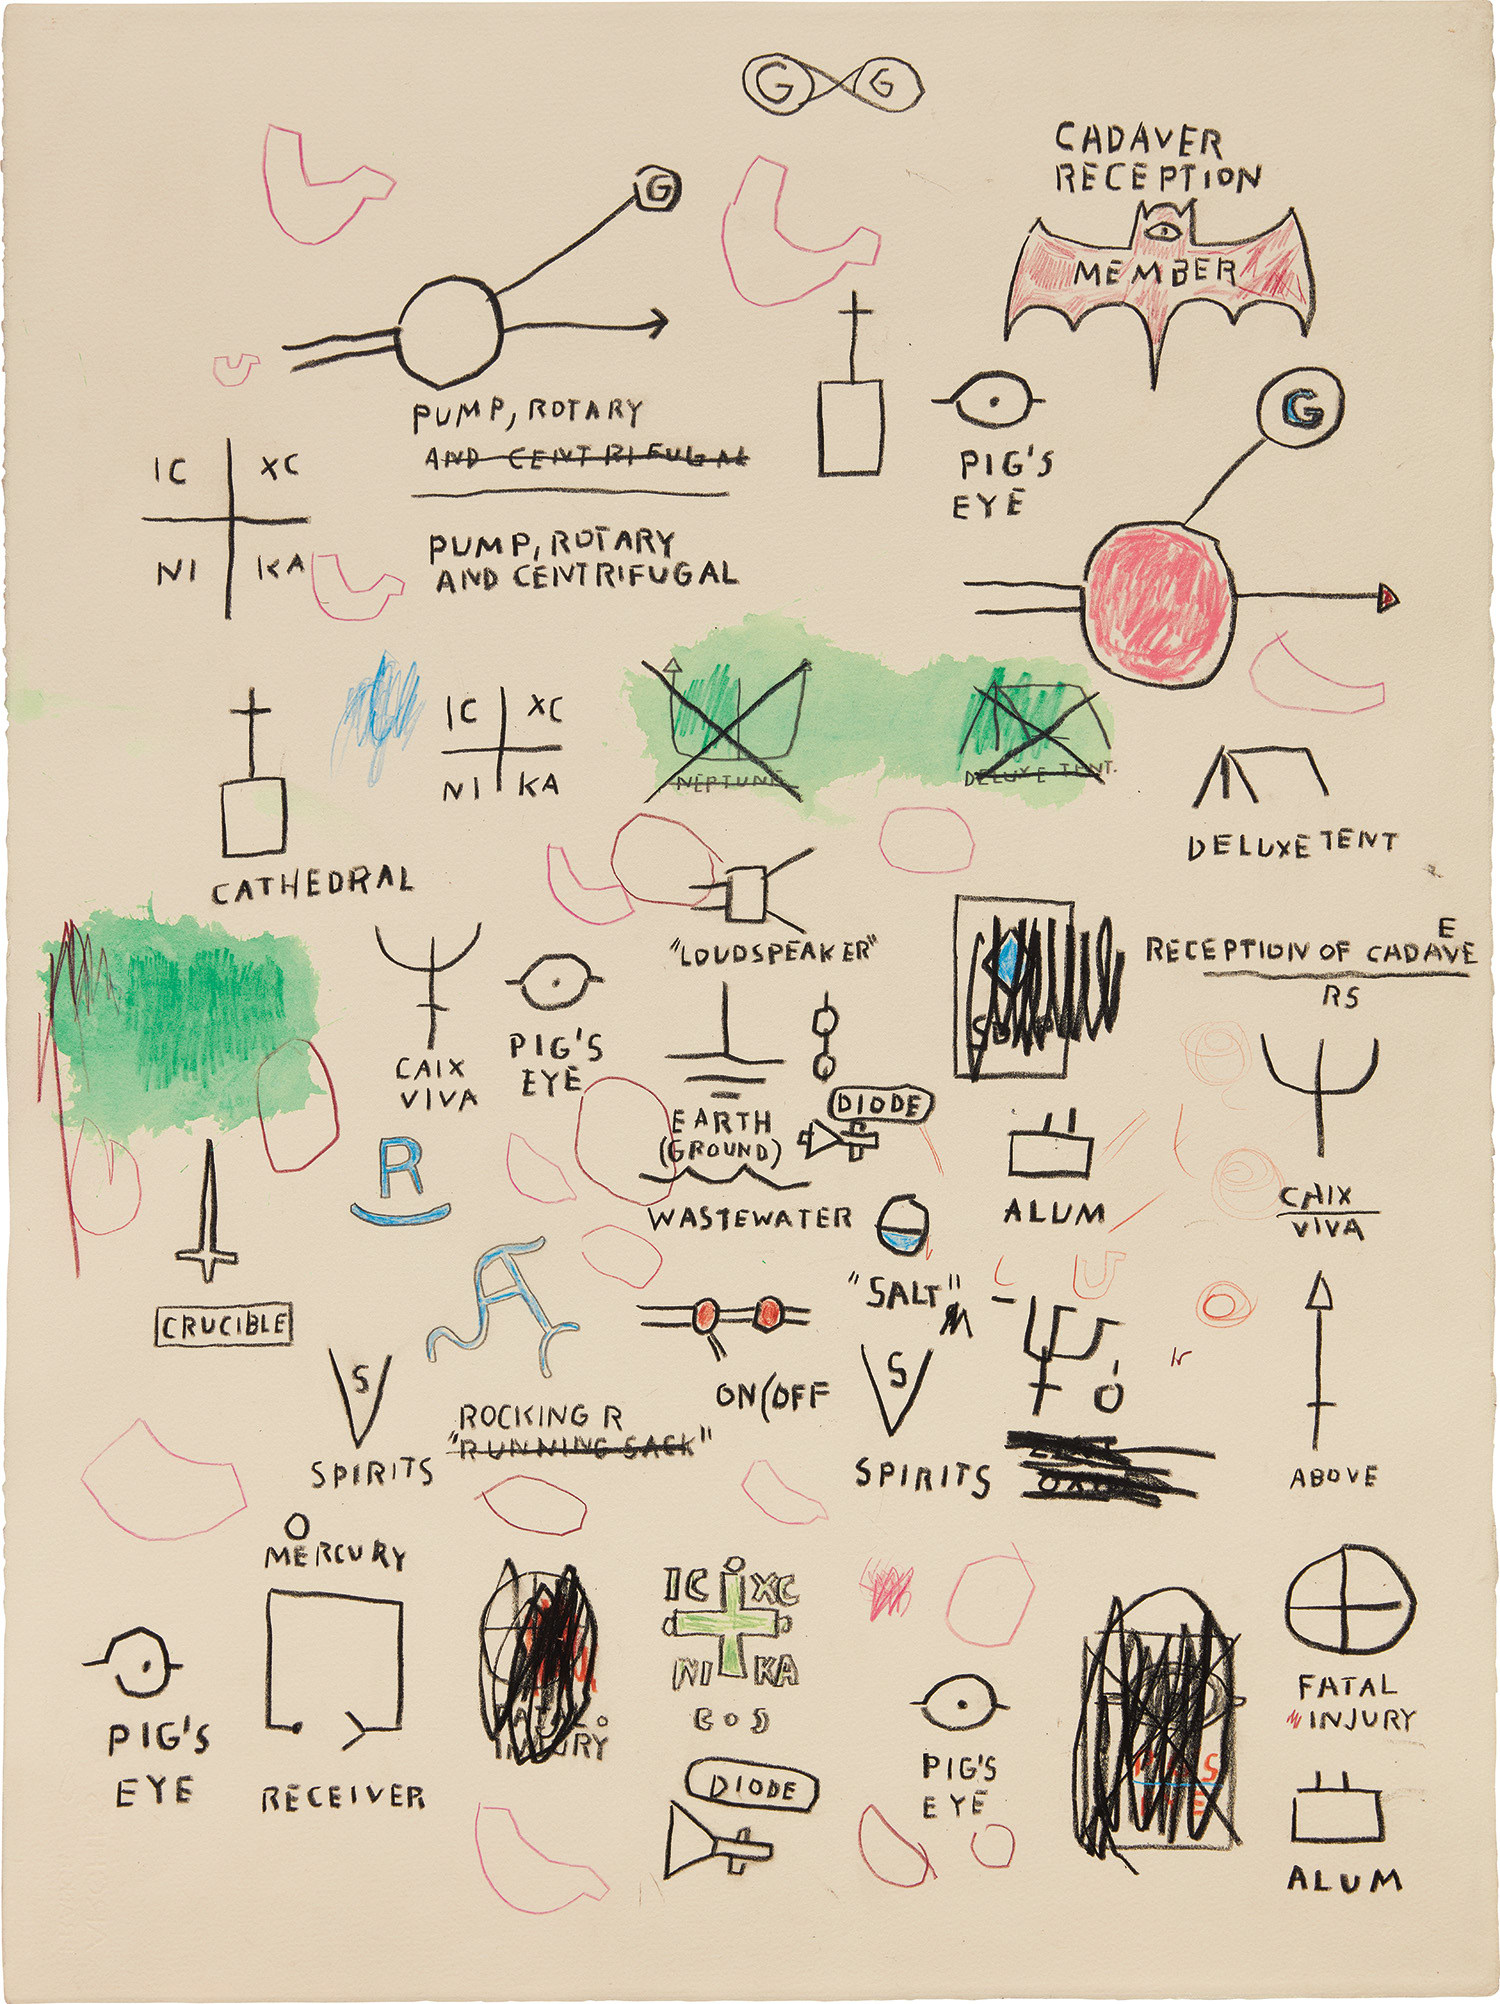 G G
CADAVER
RECEPTION
MEMBER
G
G
PUMP, ROTARY
AND CENTRIFUGAL
PUMP, ROTARY
AND CENTRIFUGAL
PIG'S
EYE
IC XC
NI KA
IC XC
NI KA
NEPTUNE
DELUXE TENT.
DELUXE TENT
CATHEDRAL
"LOUDSPEAKER"
E
RECEPTION OF CADAVE
RS
CAIX
VIVA
PIG'S
EYE
EARTH
(GROUND)
DIODE
WASTEWATER
ALUM
CAIX
VIVA
R
CRUCIBLE
"SALT"
S
SPIRITS
ROCKING R
"RUNNING SACK"
ON(OFF
S
SPIRITS
ABOVE
MERCURY
PIG'S
EYE
RECEIVER
INJURY
IC XC
NI KA
PIG'S
EYE
FATAL
INJURY
DIODE
ALUM